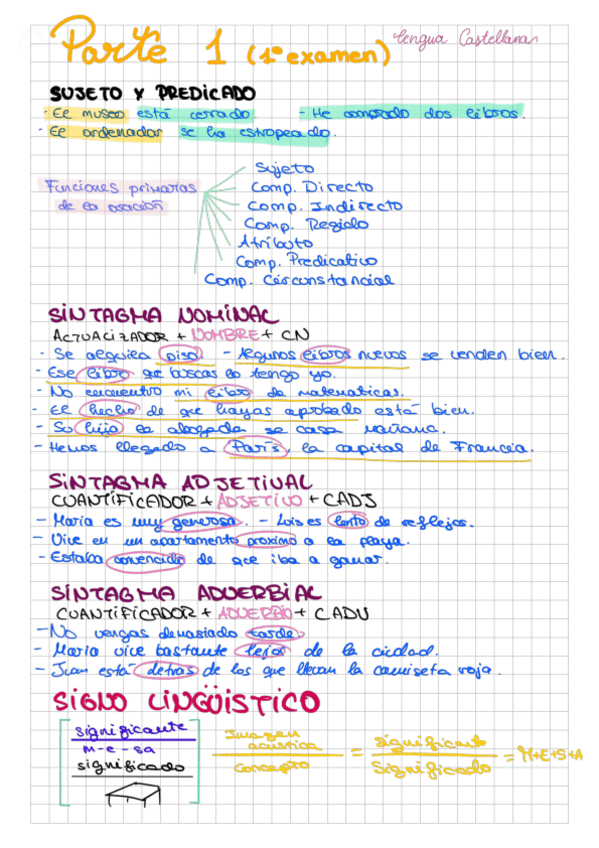 Parte 1 (1º examen) lengua Castellana
SUJETO Y PREDICADO
- El museo está cerrado. - He comprado dos libros.
- El ordenador se ha estropeado.
Sujeto
Funciones primarias Comp. Directo
de la oración Comp. Indirecto
Comp. Regido
Atributo
Comp. Predicativo
Comp. Circunstancial
SINTAGMA NOMINAL
ACTUALIZADOR + NOMBRE + CN
- Se alquila piso. - Algunos libros nuevos se venden bien.
- Ese libro que buscas lo tengo yo.
- No encuentro mi libro de matematicas.
- El hecho de que hayas aprobado está bien.
- Su hija la abogada se casa mañana.
- Hemos llegado a París, la capital de Francia.
SINTAGMA ADJETIVAL
CUANTIFICADOR + ADJETIVO + CADJ
- Maria es muy generosa. - Luis es lento de reflejos.
- Vive en un apartamento proximo a la playa.
- Estaba convencido de que iba a ganar.
SINTAGMA ADVERBIAL
CUANTIFICADOR + ADVERBIO + CADV
- No vengas demasiado tarde.
- Maria vive bastante lejos de la ciudad.
- Juan está detras de los que llevan la camiseta roja.
SIGNO LINGÜISTICO
significante
M-e-sa
significado
Imagen acústica / Concepto = significante / Significado = M+E+S+A